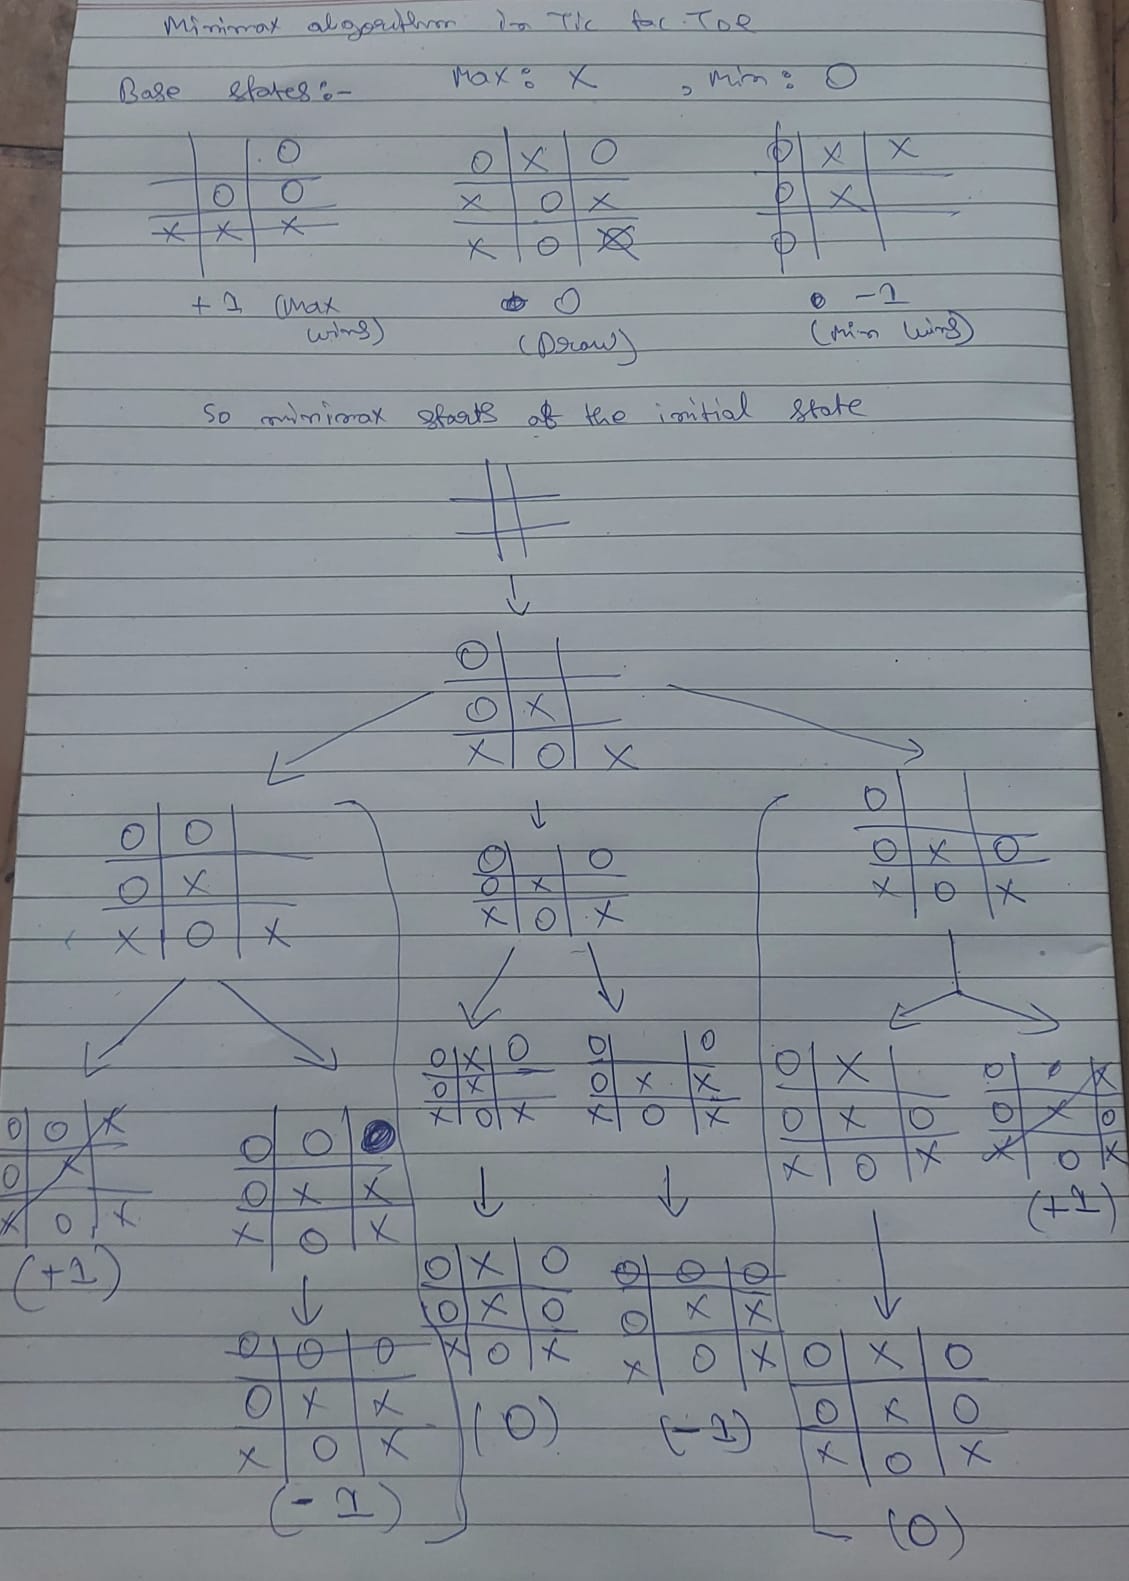 Minimax algorithm in Tic Tac Toe
Base states:- Max: X , Min: O
O O X O O X X
O O X O X O X
X X X X O O
+1 (Max wins) 0 (Draw) -1 (Min wins)
So minimax starts at the initial state
O
O X
X O X
O O
O X
X O X
O O
O X
X O X
O
O X O
X O X
O O X
O X
X O X
(+1)
O O
O X X
X O X
O X O
O X
X O X
O O
O X X
X O X
O X
O X O
X O X
O X
O X O
X O X
(+1)
O O O
O X X
X O X
(-1)
O X O
O X O
X O X
(0)
O O O
O X X
X O X
(-1)
O X O
O X O
X O X
(0)